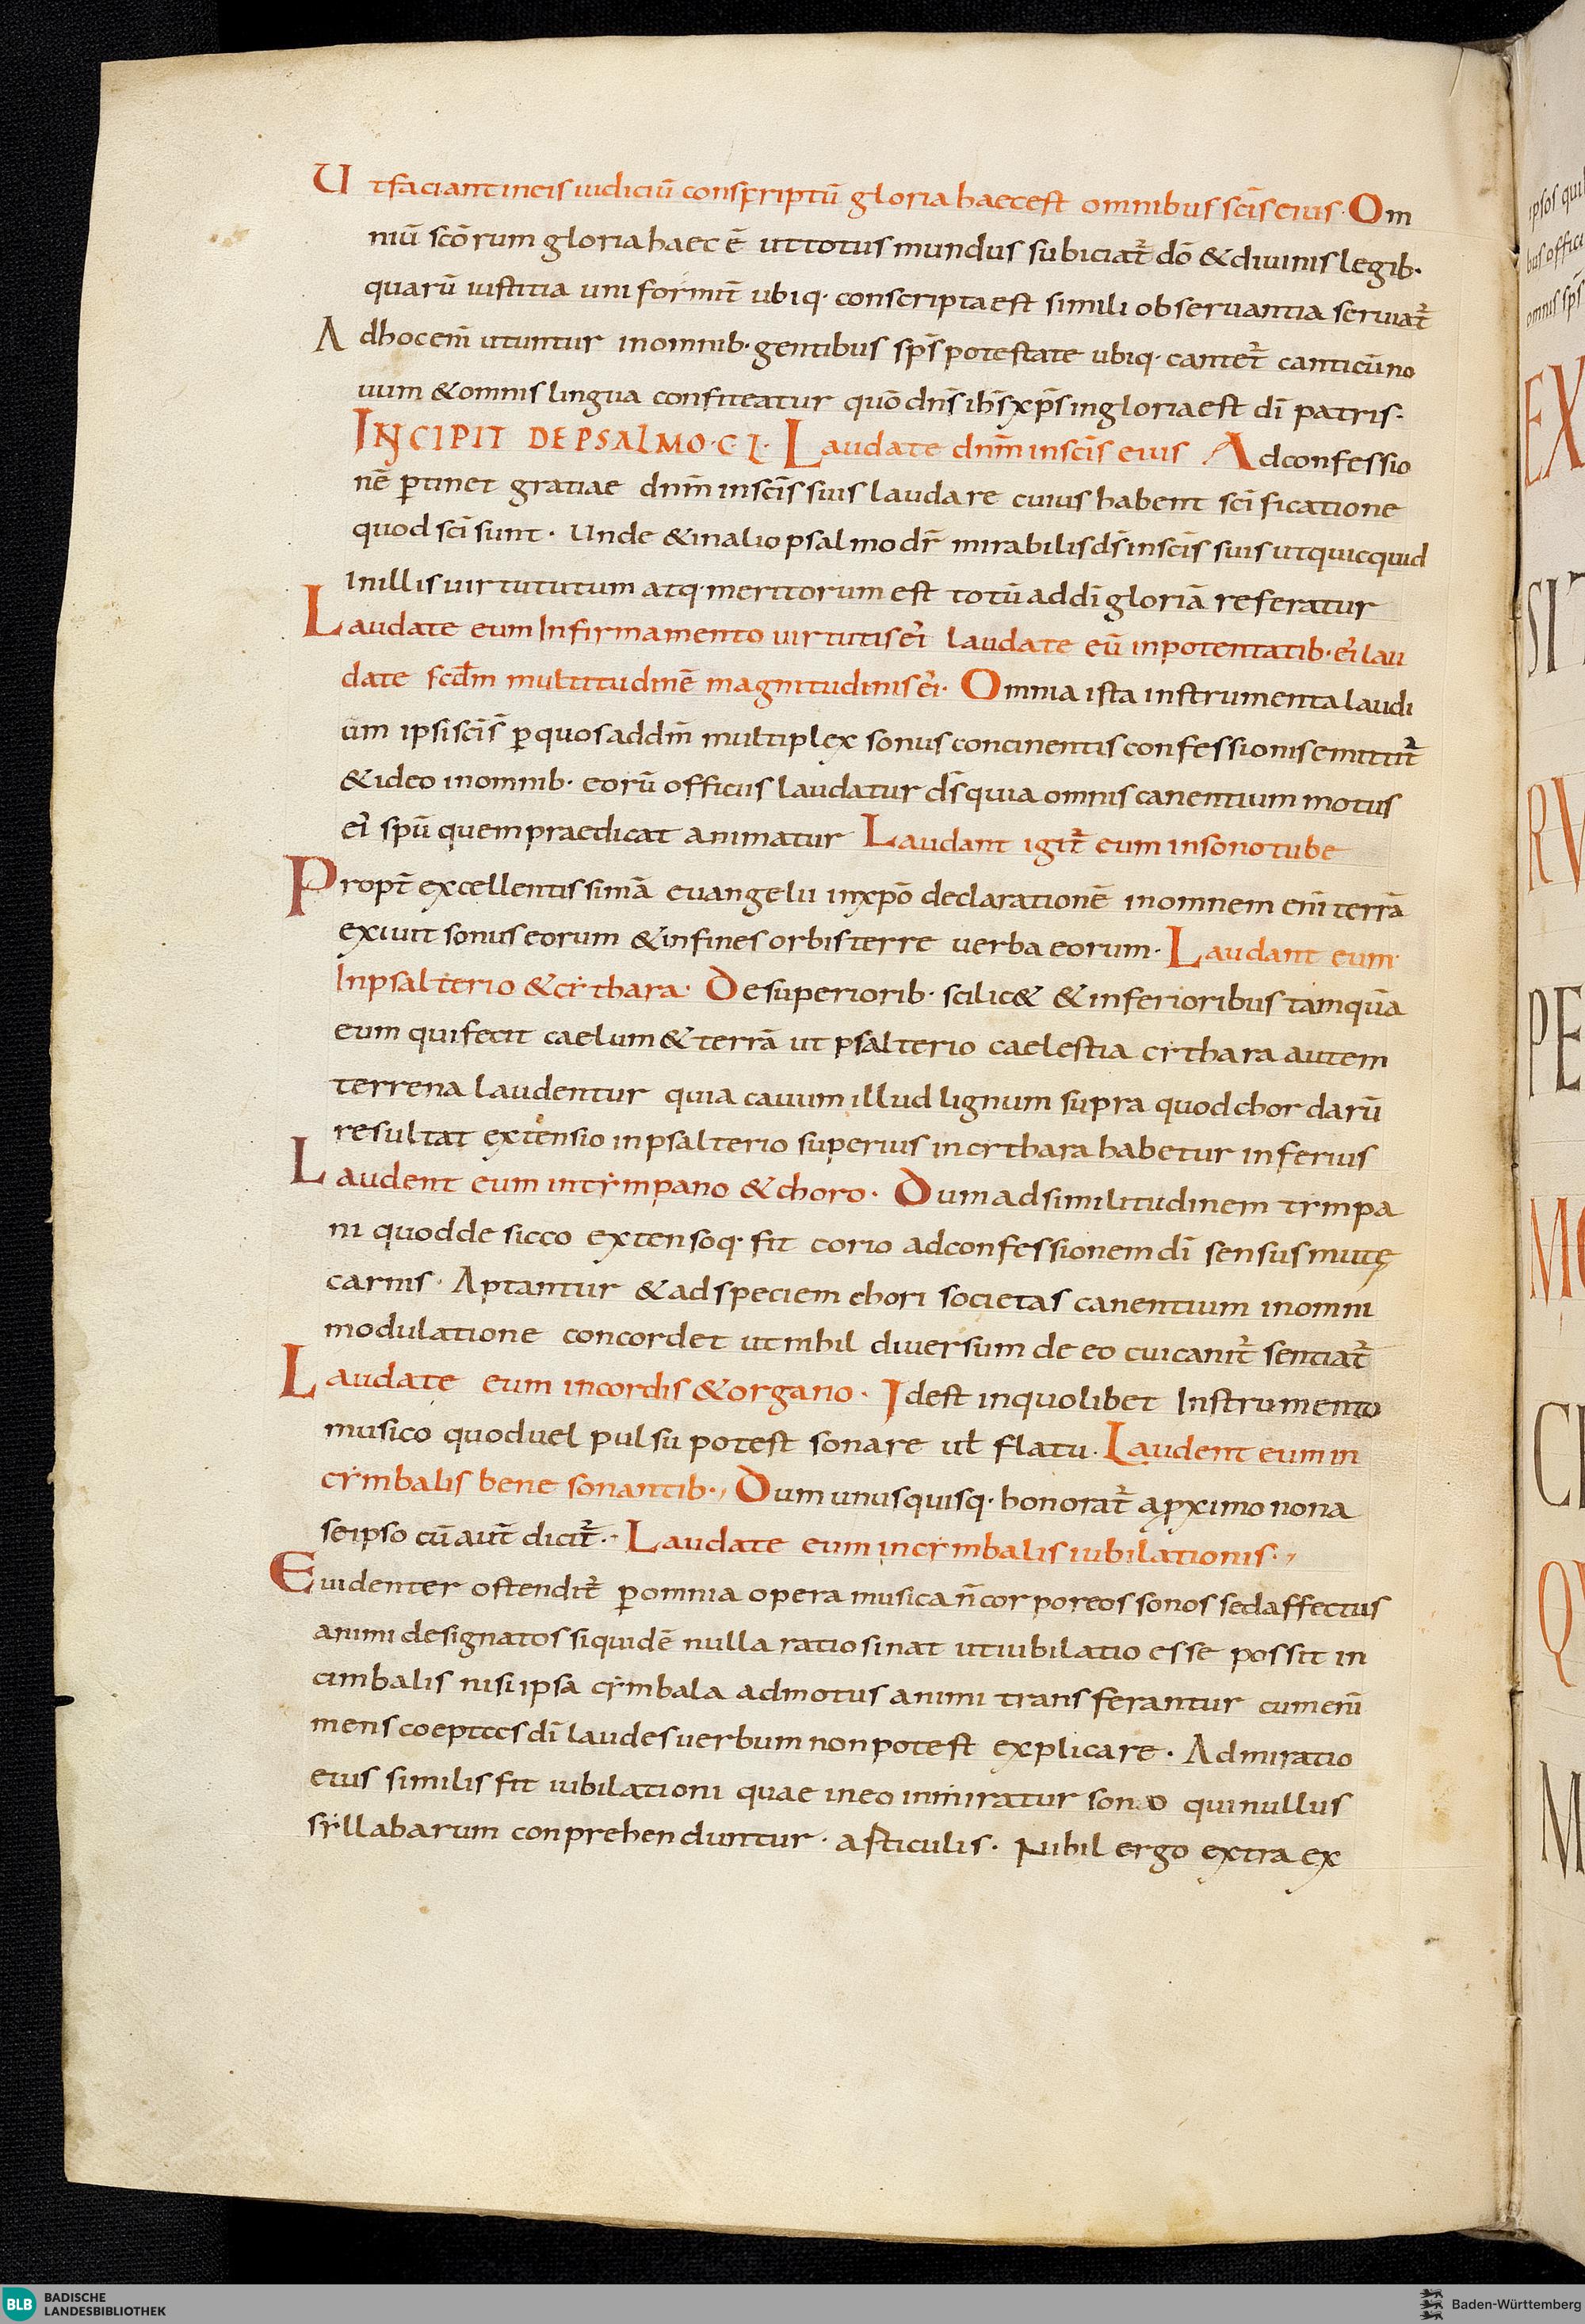 Ut faciant in eis iudiciū conscriptū gloria haec est omnibus scīs eius · Om
niū scōrum gloria haec ē ut totus mundus subiciat̄ dō & diuinis legib·
quarū iustitia uniformit̄ ubiq· conscripta est simili obseruantia seruiat̄
Ad hoc eni̅ utuntur in omnib· gentibus sp̄s potestate ubiq· cantet̄ canticū no
uum & omnis lingua confiteatur quō dn̄s ih̄s xp̄s in gloria est dī patris:
INCIPIT DE PSALMO · C · L · Laudate dnm̄ in scīs eius Ad confessio
nē p̱tinet gratiae dnm̄ in scīs suis laudare cuius habent scīficatione
quod scī sunt · Unde & in alio psalmo dr̄ mirabilis ds̄ in scīs suis ut quicquid
In illis uirtututum atq· meritorum est totū ad dī gloriā referatur
Laudate eum In firmamento uirtutis eī laudate eū in potentatib· eī lau
date scd̄m multitudinē magnitudinis eī · Omnia ista instrumenta laudi
um ipsi scīs̄ p̱ quos ad dm̄ multiplex sonus concinentis confessionis emittit̄
& ideo in omnib· eorū officiis laudatur ds̄ quia omnis canentium motus
eī spū quem praedicat animatur Laudant igit̄ eum in sono tube
Propt̄ excellentissimā euangelii in xpō declarationē in omnem eni̅ terrā
exiuit sonus eorum & in fines orbis terre uerba eorum · Laudant eum
In psalterio & cẏthara · De superiorib· scilic& & inferioribus tamquā
eum qui fecit caelum & terrā ut psalterio caelestia cythara autem
terrena laudentur quia cauum illud lignum supra quod chordarū
resultat extensio in psalterio superius in cythara habetur inferius
Laudent eum in tẏmpano & choro · Dum ad similitudinem tympa
ni quod de sicco extensoq· fit corio ad confessionem dī sensus mutę
carnis · Aptantur & ad speciem chori societas canentium in omni
modulatione concordet ut nihil diuersum de eo cui canit̄ sentiat̄
Laudate eum in cordis & organo · Id est in quolibet Instrumento
musico quod uel pulsu potest sonare ul̄ flatu · Laudent eum in
cẏmbalis bene sonantib·, Dum unusquisq· honorat̄ a p̱ximo non a
se ipso cū aut̄ dicit̄ · Laudate eum in cẏmbalis iubilationis ·,
Euidenter ostendit̄ p̱ omnia opera musica n̄ corporeos sonos sed affectus
animi designatos siquidē nulla ratio sinat ut iubilatio esse possit in
cimbalis nisi ipsa cẏmbala ad motus animi transferantur cum eni̅
mens coeptees dī laudes uerbum non potest explicare · Admiratio
eius similis fit iubilationi quae in eo inmiratur sono qui nullus
sẏllabarum conprehenduntur · asticulis · Nihil ergo extra ex
ipsos qui
bus offici
omnis sp̄s
EX
SIT
RV
PE
MO
CI
QV
M
BLB BADISCHE LANDESBIBLIOTHEK
Baden-Württemberg